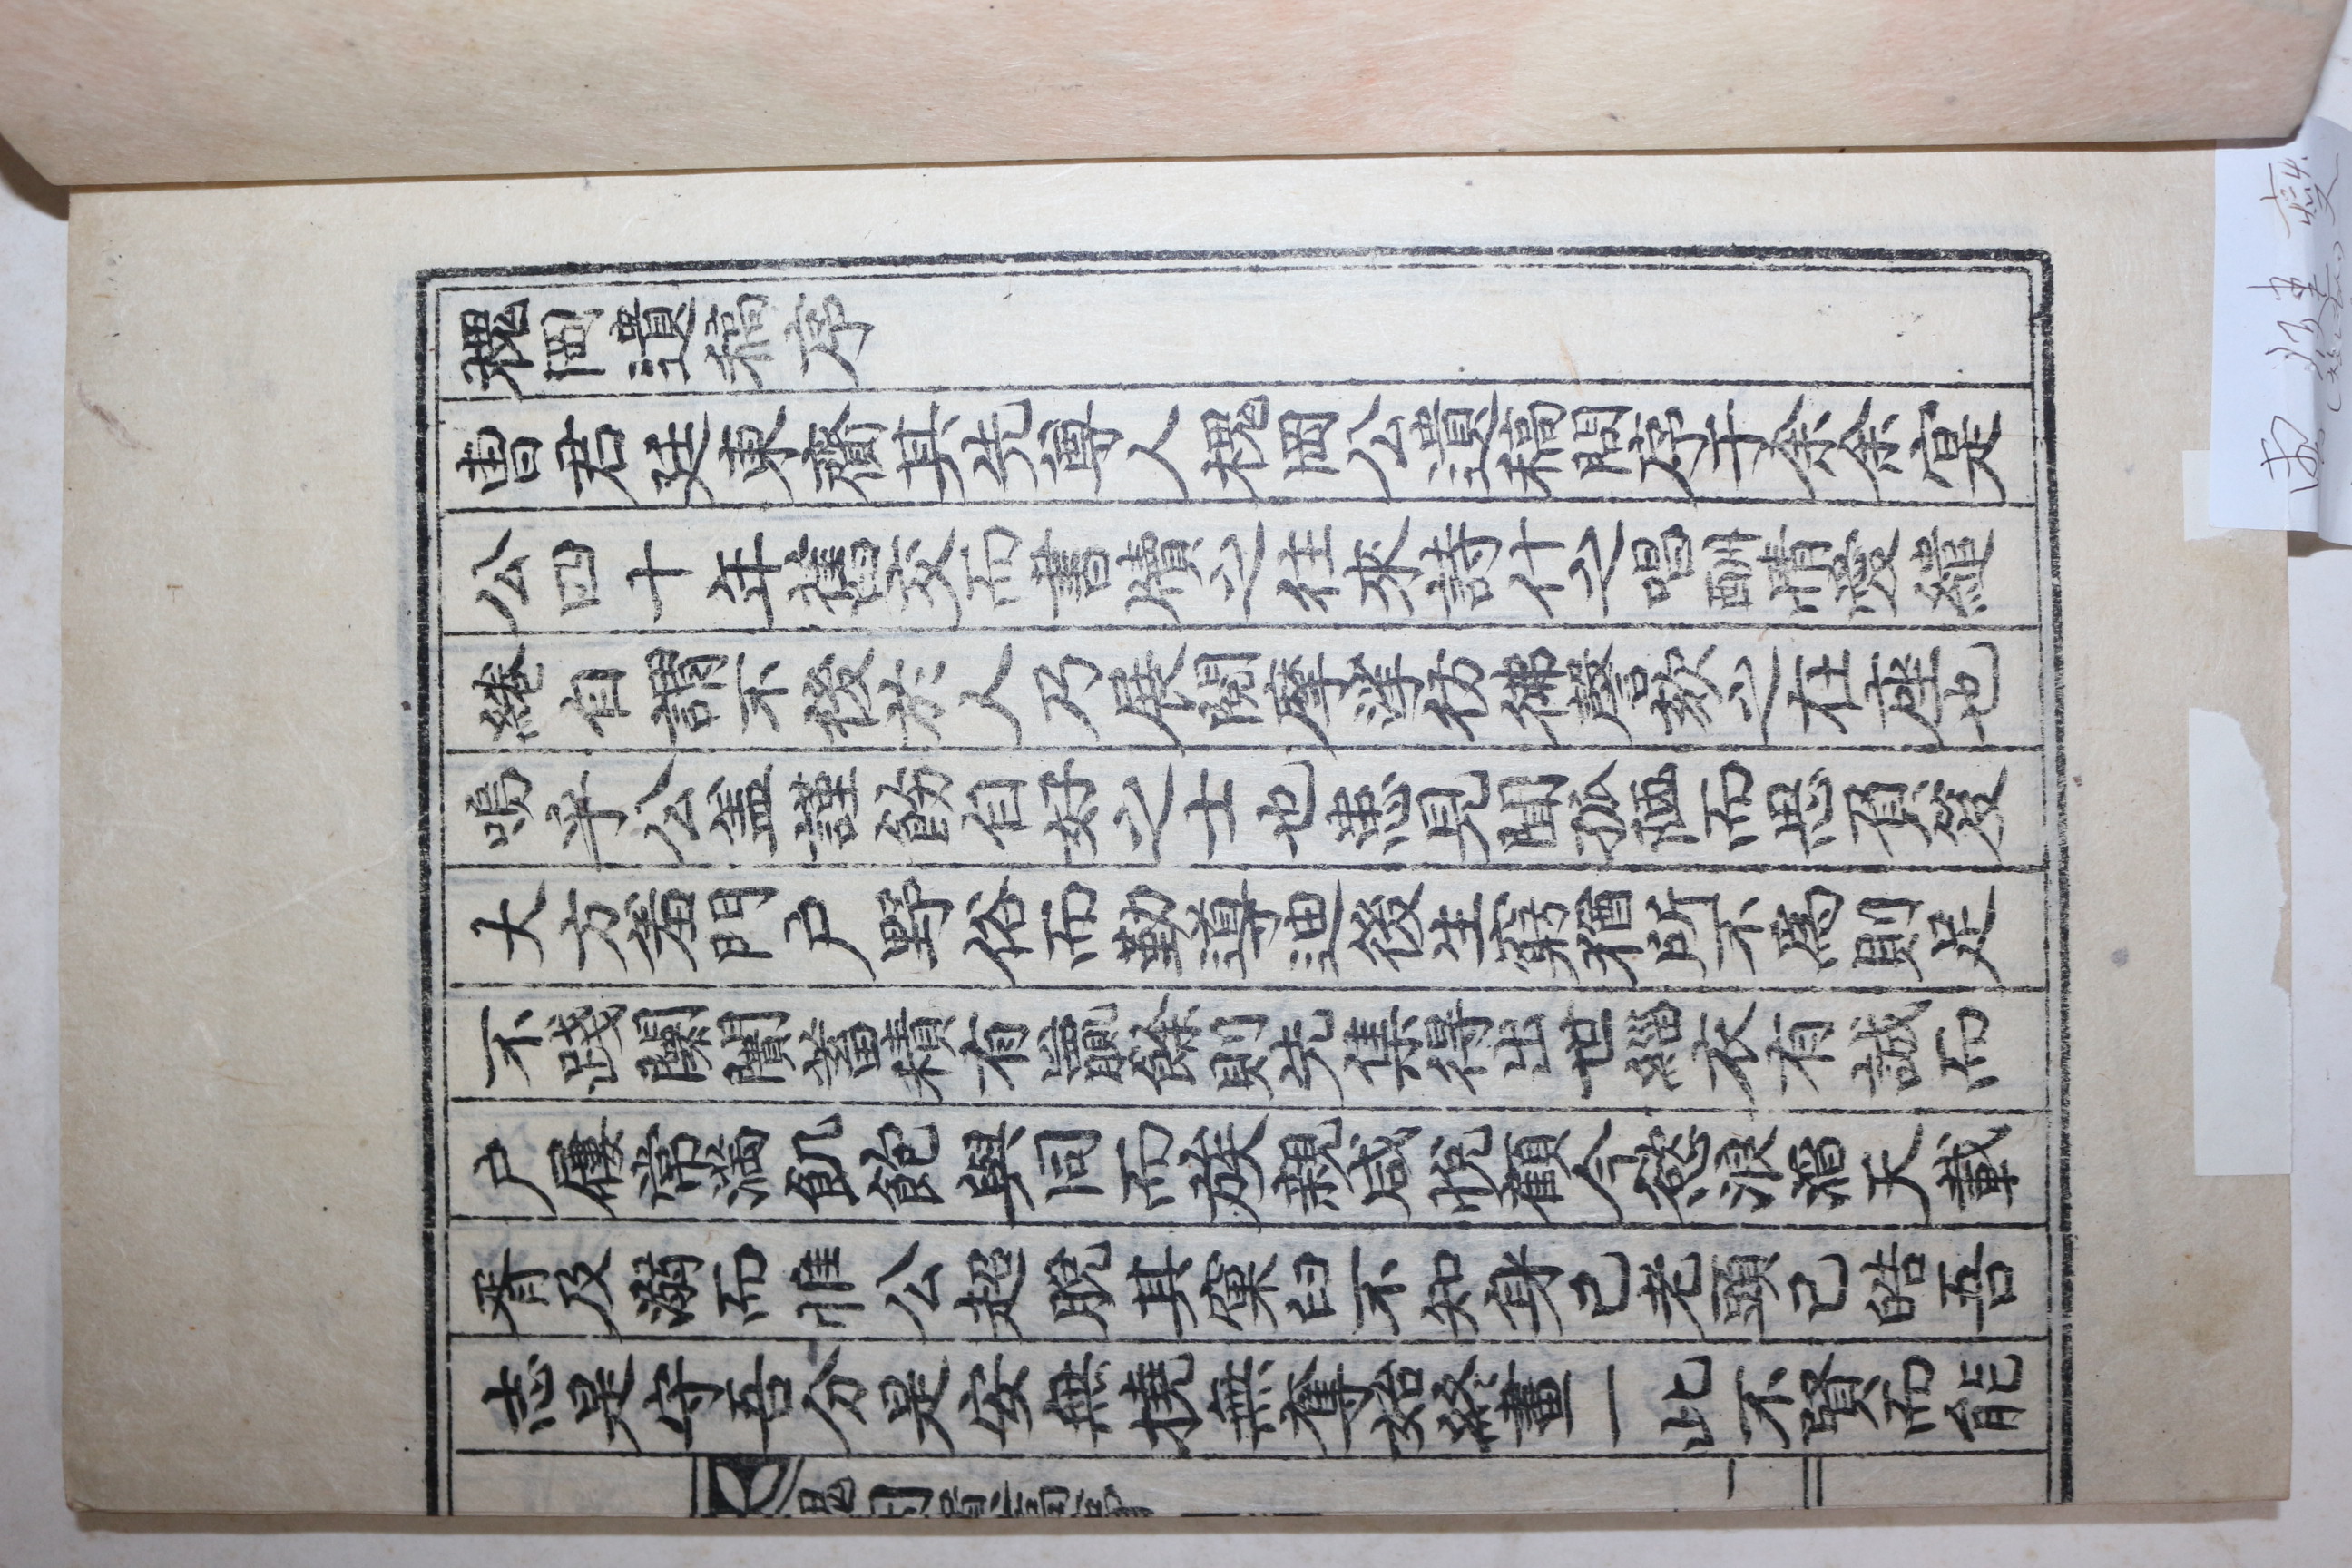 槐岡遺稿序
曺君廷東齎其先尊人槐岡公遺稿問序于余余寔
公四十年舊交而書牘之往來詩什之唱酬情愛繾
綣自謂不後於人乃展閱摩挲彷彿謦欬之在座也
嗚乎公盖謹飭自好之士也患見聞孤陋而思負笈
大方羞門户野俗而勤導迪後生窮猶所不爲則足
不踐闤闠蓄積有贏餘則先集得出世緇衣有誠而
户屨常滿飢飽與同而族親咸悅顧今慾浪滔天載
胥及溺而惟公超脫其窠臼不知身已老頭已皓吾
志是守吾分是安無撓無奪始終畫一此不賢而能
槐岡遺稿序
一